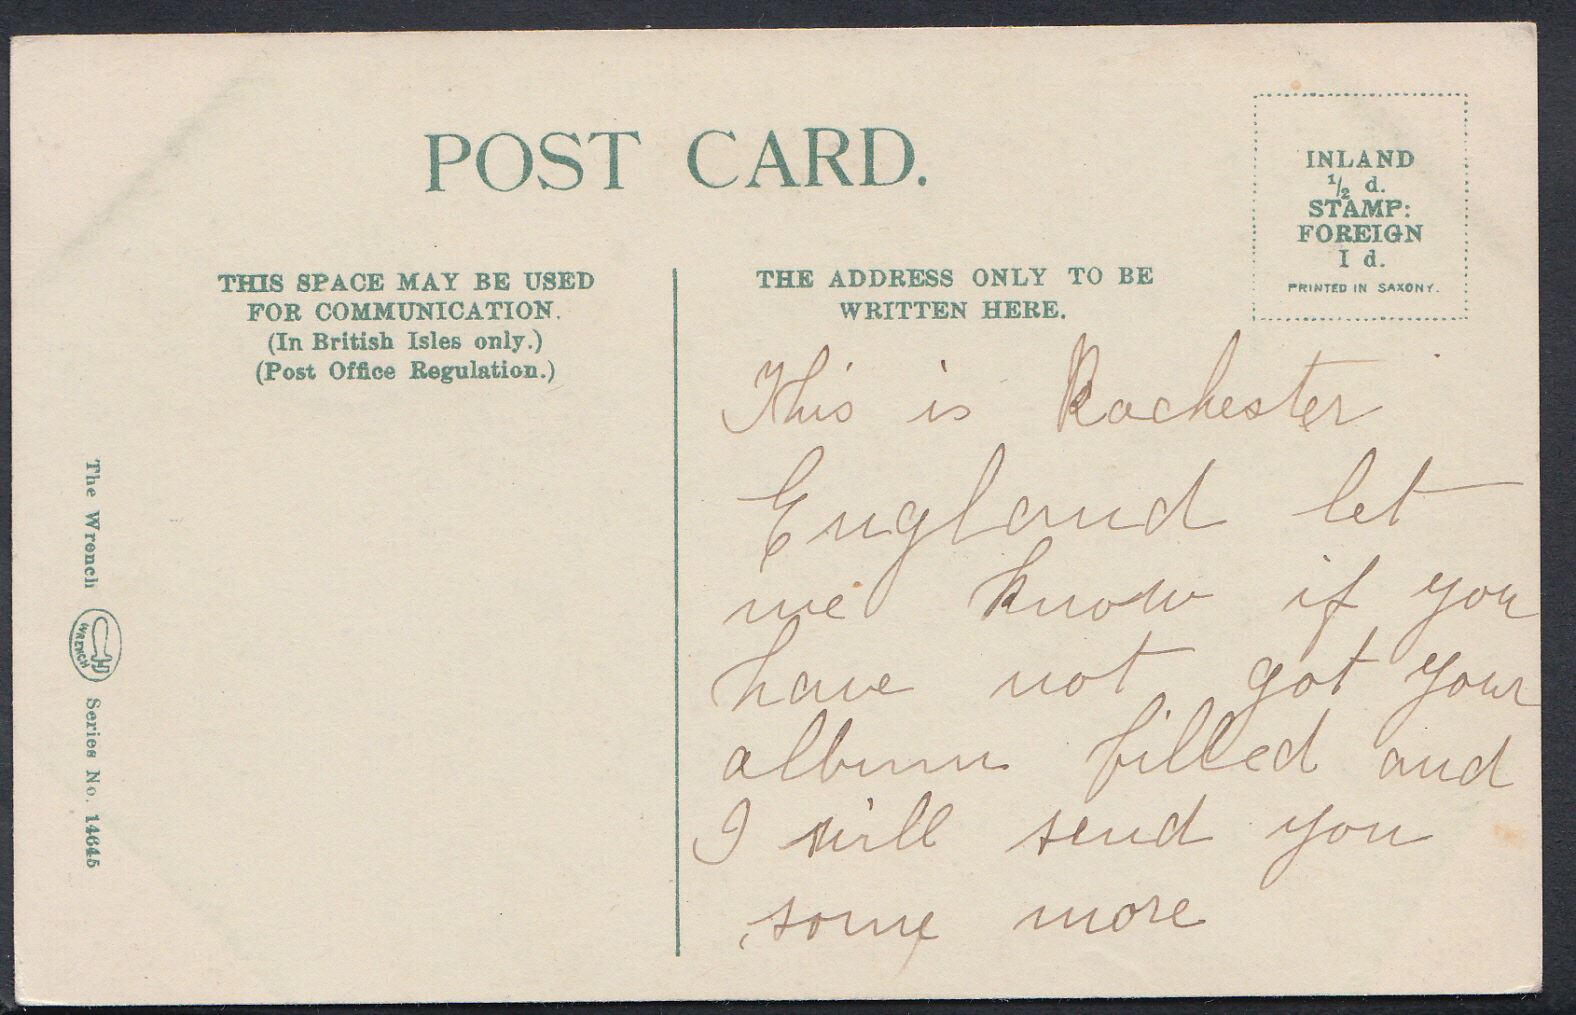 POST CARD.
INLAND
1/2 d.
STAMP:
FOREIGN
1 d.
PRINTED IN SAXONY.
THIS SPACE MAY BE USED
FOR COMMUNICATION.
(In British Isles only.)
(Post Office Regulation.)
THE ADDRESS ONLY TO BE
WRITTEN HERE.
This is Rochester
England let
me know if you
have not got your
album filled and
I will send you
some more
The Wrench
WRENCH
Series No. 14645